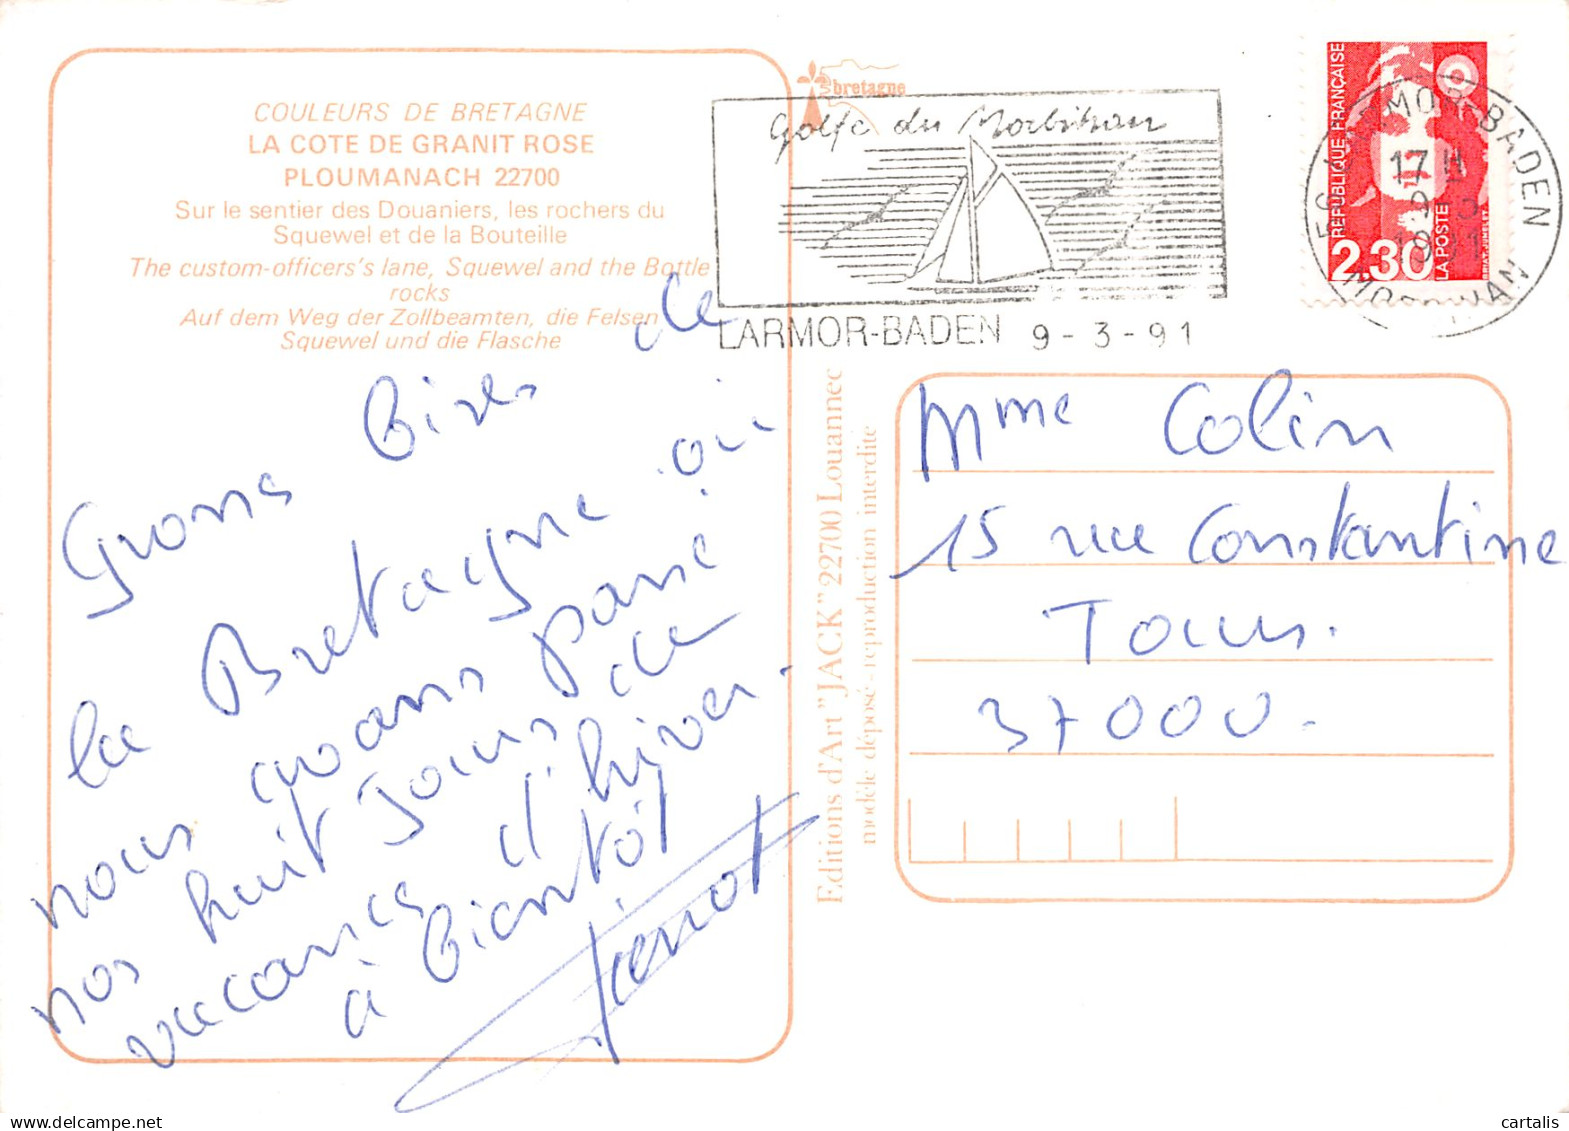 COULEURS DE BRETAGNE
LA COTE DE GRANIT ROSE
PLOUMANACH 22700
Sur le sentier des Douaniers, les rochers du
Squewel et de la Bouteille
The custom-officers's lane, Squewel and the Bottle
rocks
Auf dem Weg der Zollbeamten, die Felsen
Squewel und die Flasche
Grosses bises de
la Bretagne où
nous avons passé
nos huit jours de
vacances d'hiver.
à bientôt
bretagne
Golfe du Morbihan
LARMOR-BADEN 9-3-91
REPUBLIQUE FRANÇAISE
2.30
LA POSTE
BRIAT.JUMELET
LARMOR-BADEN
17 H
9-3
91
MORBIHAN
Editions d'Art "JACK" 22700 Louannec
modèle déposé - reproduction interdite
Mme Colin
15 rue Constantine
Tours.
37000.
cartalis